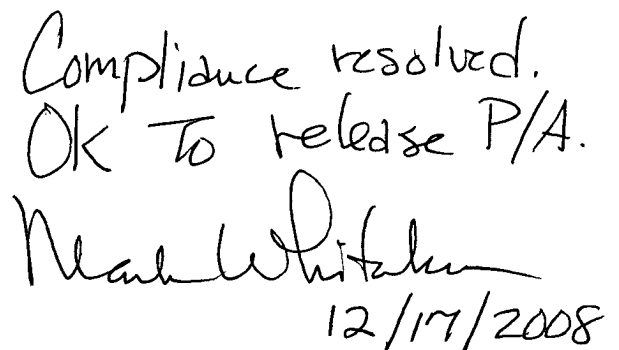 Compliance resolved.
OK To release P/A.
Mark Whitaker
12/17/2008